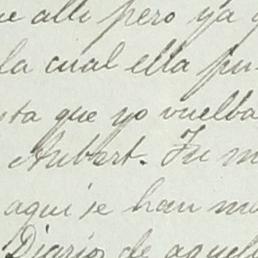 alli pero ya
la cual ella pu
que yo vuelba
Aubert. Tu m
aqui se han mu
Diario de aquel